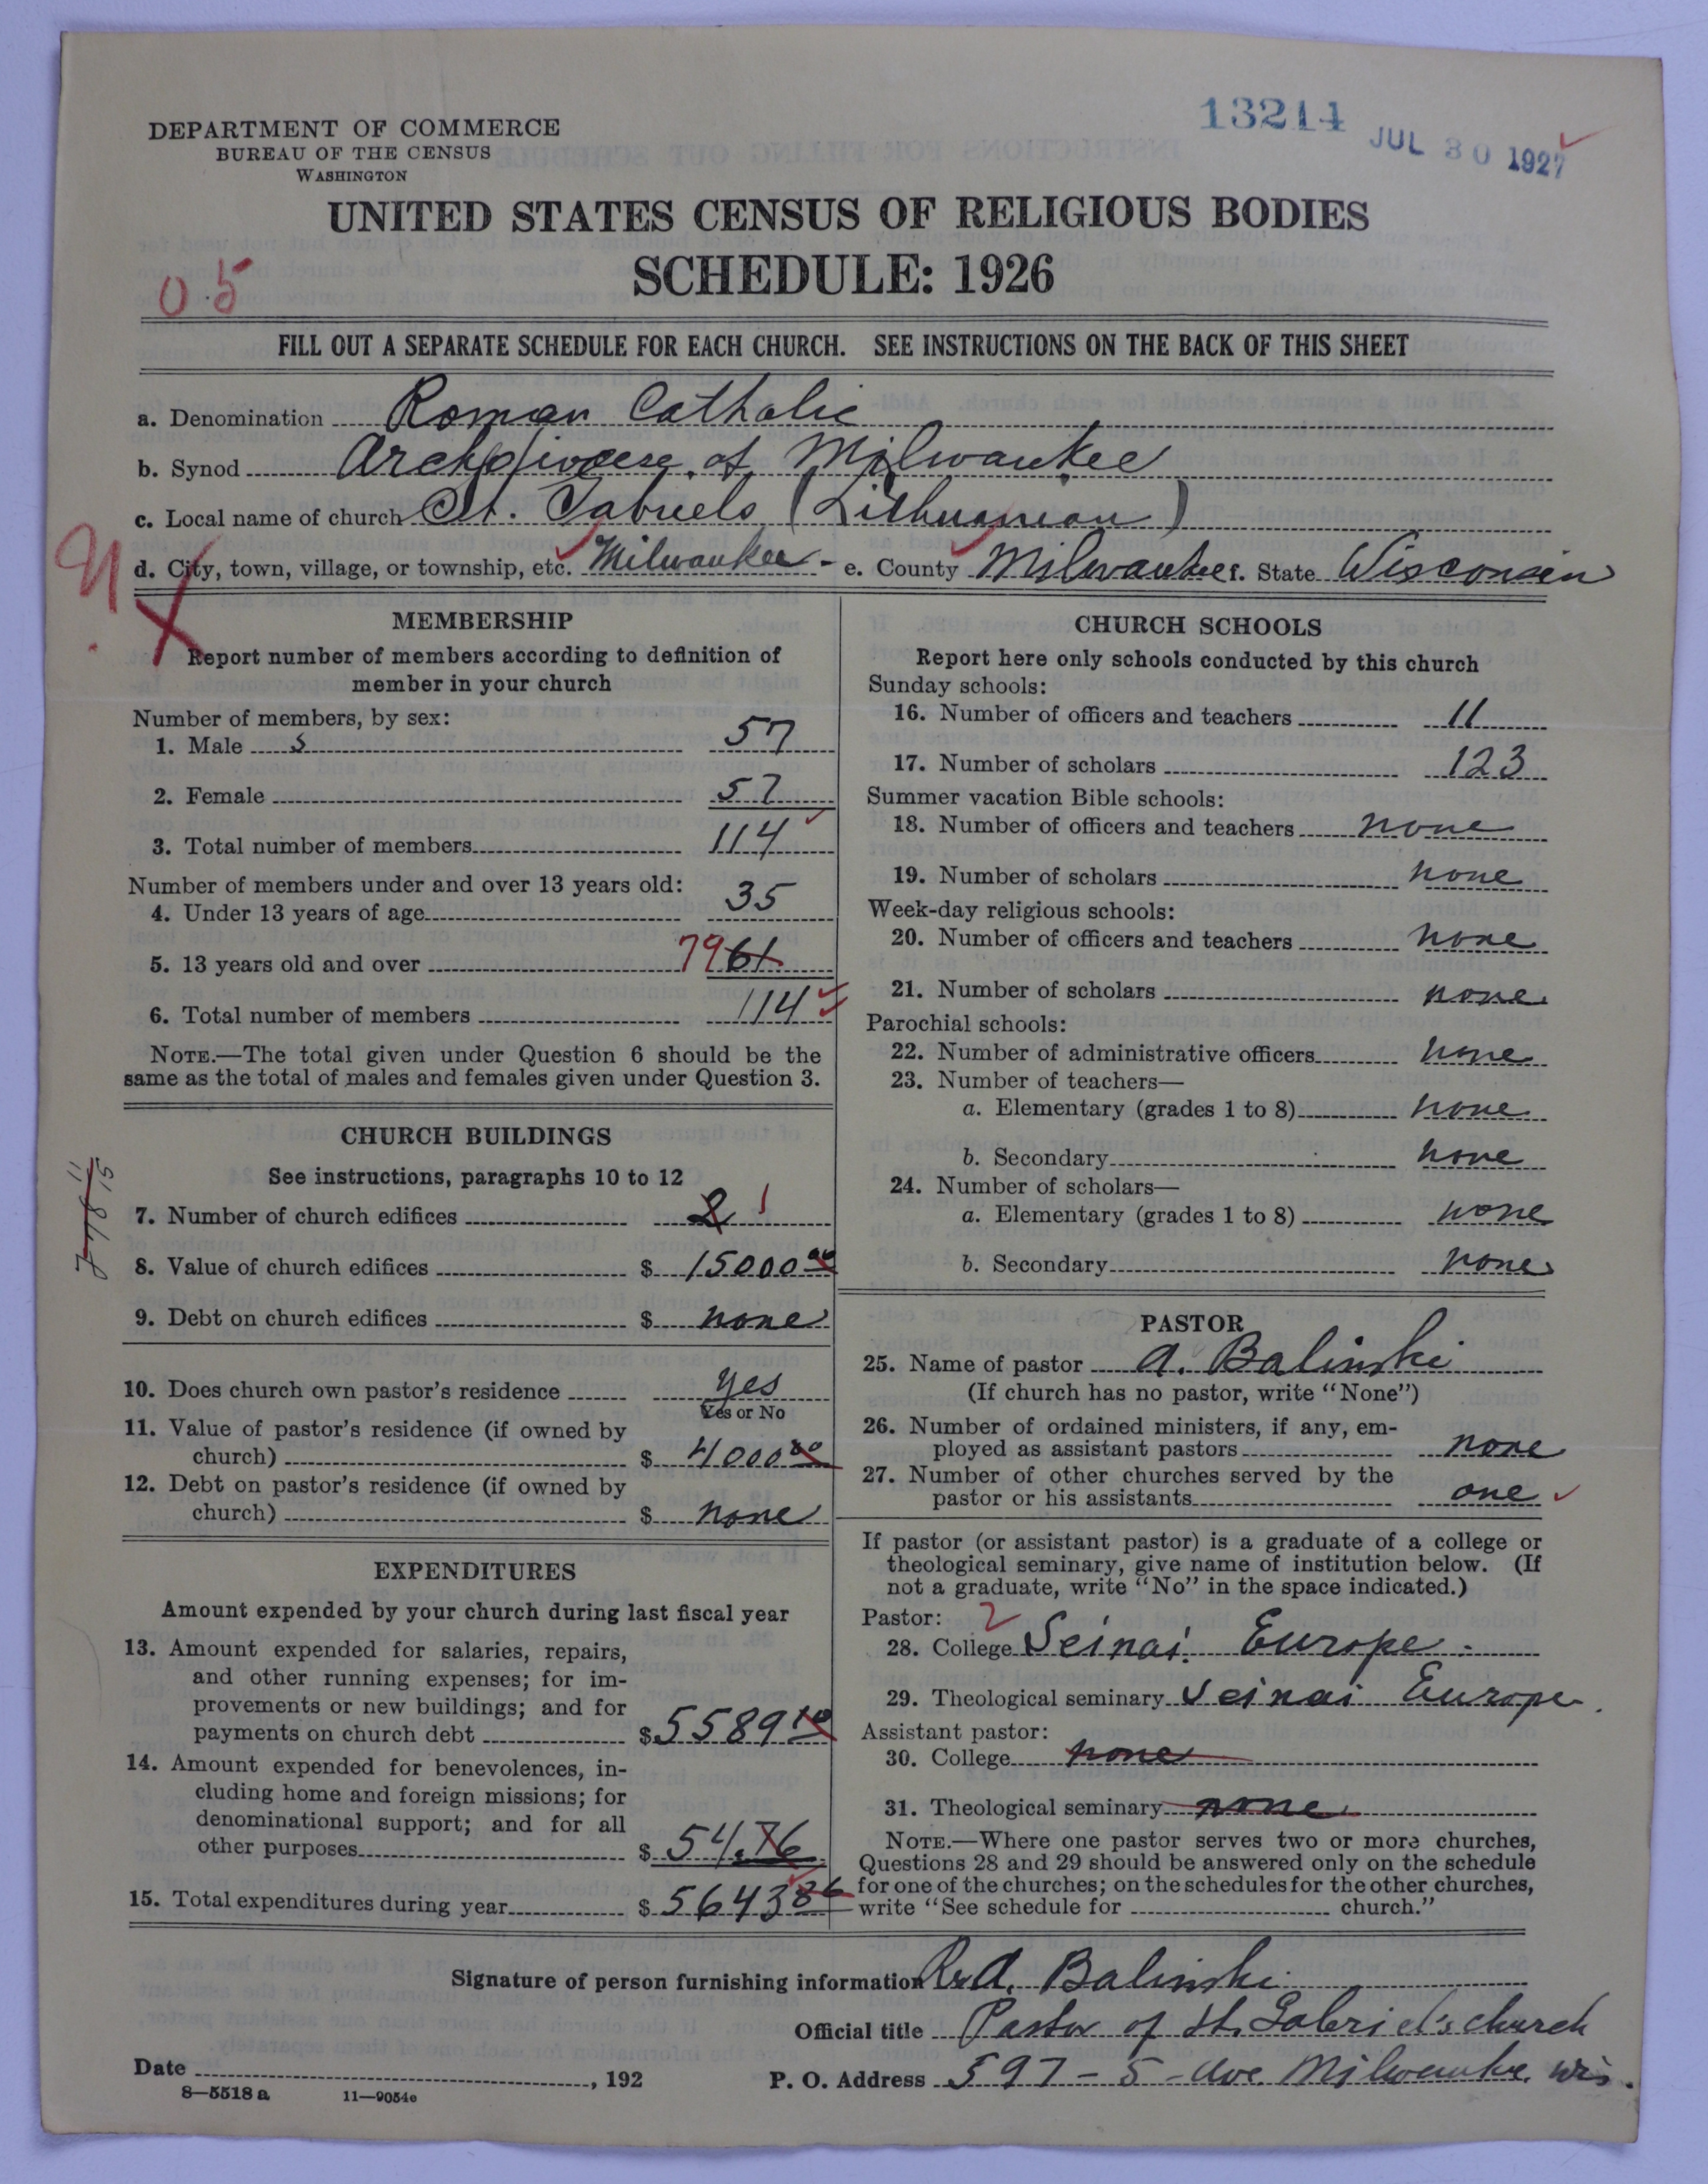 13214
JUL 30 1927
DEPARTMENT OF COMMERCE
BUREAU OF THE CENSUS
WASHINGTON
UNITED STATES CENSUS OF RELIGIOUS BODIES
SCHEDULE: 1926
05
FILL OUT A SEPARATE SCHEDULE FOR EACH CHURCH. SEE INSTRUCTIONS ON THE BACK OF THIS SHEET
a. Denomination Roman Catholic
b. Synod Archdiocese of Milwaukee
c. Local name of church St. Gabriels (Lithuanian)
d. City, town, village, or township, etc. Milwaukee - e. County Milwaukee f. State Wisconsin
MEMBERSHIP
Report number of members according to definition of
member in your church
Number of members, by sex:
1. Male s 57
2. Female 57
3. Total number of members 114
Number of members under and over 13 years old:
4. Under 13 years of age 35
5. 13 years old and over 79 61
6. Total number of members 114
NOTE.—The total given under Question 6 should be the
same as the total of males and females given under Question 3.
CHURCH BUILDINGS
See instructions, paragraphs 10 to 12
7. Number of church edifices 2 1
8. Value of church edifices $ 15000 00
9. Debt on church edifices $ none
10. Does church own pastor's residence yes
Yes or No
11. Value of pastor's residence (if owned by
church) $ 4000 00
12. Debt on pastor's residence (if owned by
church) $ none
EXPENDITURES
Amount expended by your church during last fiscal year
13. Amount expended for salaries, repairs,
and other running expenses; for im-
provements or new buildings; and for
payments on church debt $ 5589 10
14. Amount expended for benevolences, in-
cluding home and foreign missions; for
denominational support; and for all
other purposes $ 54.76
15. Total expenditures during year $ 5643 86
CHURCH SCHOOLS
Report here only schools conducted by this church
Sunday schools:
16. Number of officers and teachers 11
17. Number of scholars 123
Summer vacation Bible schools:
18. Number of officers and teachers none
19. Number of scholars none
Week-day religious schools:
20. Number of officers and teachers none
21. Number of scholars none
Parochial schools:
22. Number of administrative officers none
23. Number of teachers—
a. Elementary (grades 1 to 8) none
b. Secondary none
24. Number of scholars—
a. Elementary (grades 1 to 8) none
b. Secondary none
PASTOR
25. Name of pastor A. Balinski
(If church has no pastor, write "None")
26. Number of ordained ministers, if any, em-
ployed as assistant pastors none
27. Number of other churches served by the
pastor or his assistants one
If pastor (or assistant pastor) is a graduate of a college or
theological seminary, give name of institution below. (If
not a graduate, write "No" in the space indicated.)
Pastor: 2
28. College Seinai. Europe.
29. Theological seminary Seinai Europe.
Assistant pastor:
30. College none
31. Theological seminary none
NOTE.—Where one pastor serves two or more churches,
Questions 28 and 29 should be answered only on the schedule
for one of the churches; on the schedules for the other churches,
write "See schedule for church."
Signature of person furnishing information A. Balinski
Official title Pastor of St. Gabriel's church
Date , 192
P. O. Address 597 - 5 - Ave. Milwaukee, Wis.
8—5518 a 11—9054e